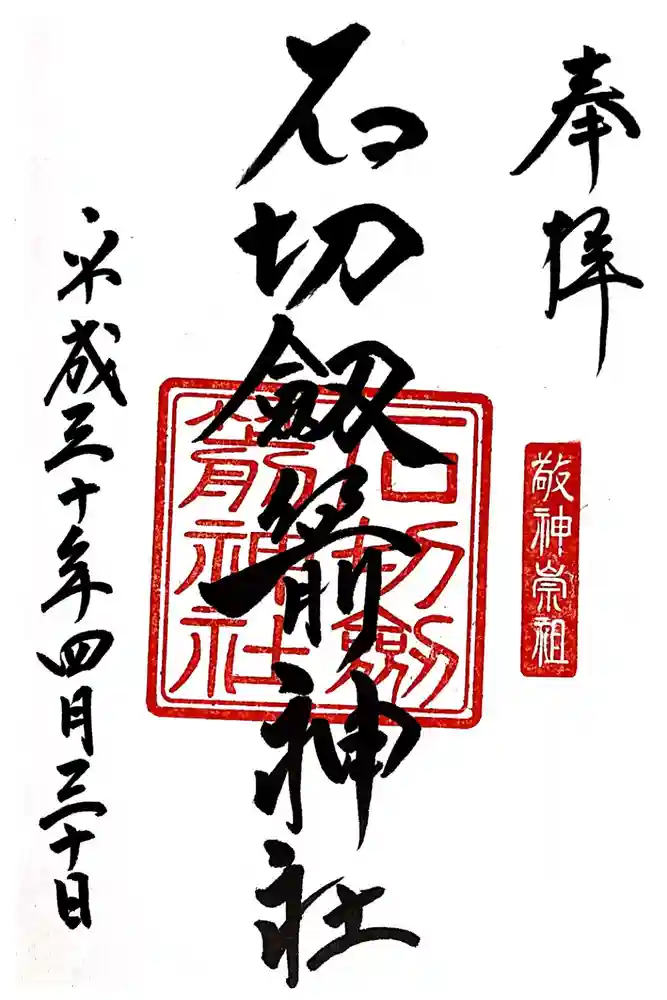 奉拝
敬神崇祖
石切劔箭神社
石切劔
箭神社
平成三十年四月三十日